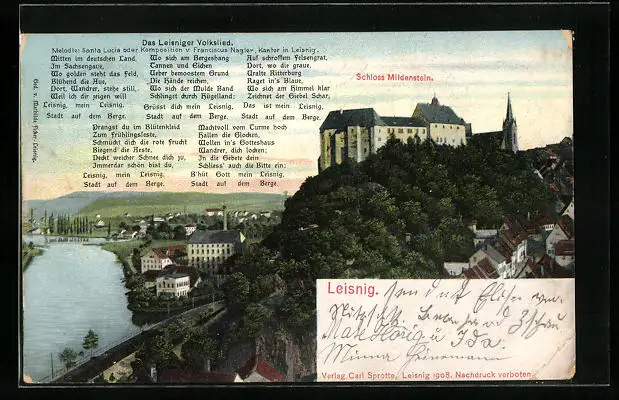 Das Leisniger Volkslied.
Melodie: Santa Lucia oder Komposition v. Franciscus Nagler, Kantor in Leisnig.
Mitten im deutschen Land,
Im Sachsengaue,
Wo golden steht das Feld,
Blühend die Aue,
Dort, Wandrer, stehe still,
Weil ich dir zeigen will
Leisnig, mein Leisnig,
Stadt auf dem Berge.
Wo sich am Bergeshang
Tannen und Eichen
Ueber bemoostem Grund
Die Hände reichen,
Wo sich der Mulde Band
Schlingt durch Hügelland:
Grüsst dich mein Leisnig,
Stadt auf dem Berge.
Auf schroffem Felsengrat,
Dort, wo die graue,
Uralte Ritterburg
Ragt in's Blaue,
Wo sich am Himmel klar
Zeichnet der Giebel Schar,
Das ist mein Leisnig,
Stadt auf dem Berge.
Prangst du im Blütenkleid
Zum Frühlingsfeste,
Schmückt dich die rote Frucht
Biegend die Aeste,
Deckt weicher Schnee dich zu,
Immerdar schön bist du,
Leisnig, mein Leisnig,
Stadt auf dem Berge.
Machtvoll vom Turme hoch
Hallen die Glocken,
Wollen in's Gotteshaus
Wandrer, dich locken;
In die Gebete dein
Schliess' auch die Bitte ein:
B'hüt Gott mein Leisnig,
Stadt auf dem Berge.
Ged. v. Mathilde Leisnig.
Schloss Mildenstein.
Leisnig.
und Elise
u. Ida
Minna
Verlag Carl Sprotte, Leisnig 1908. Nachdruck verboten.